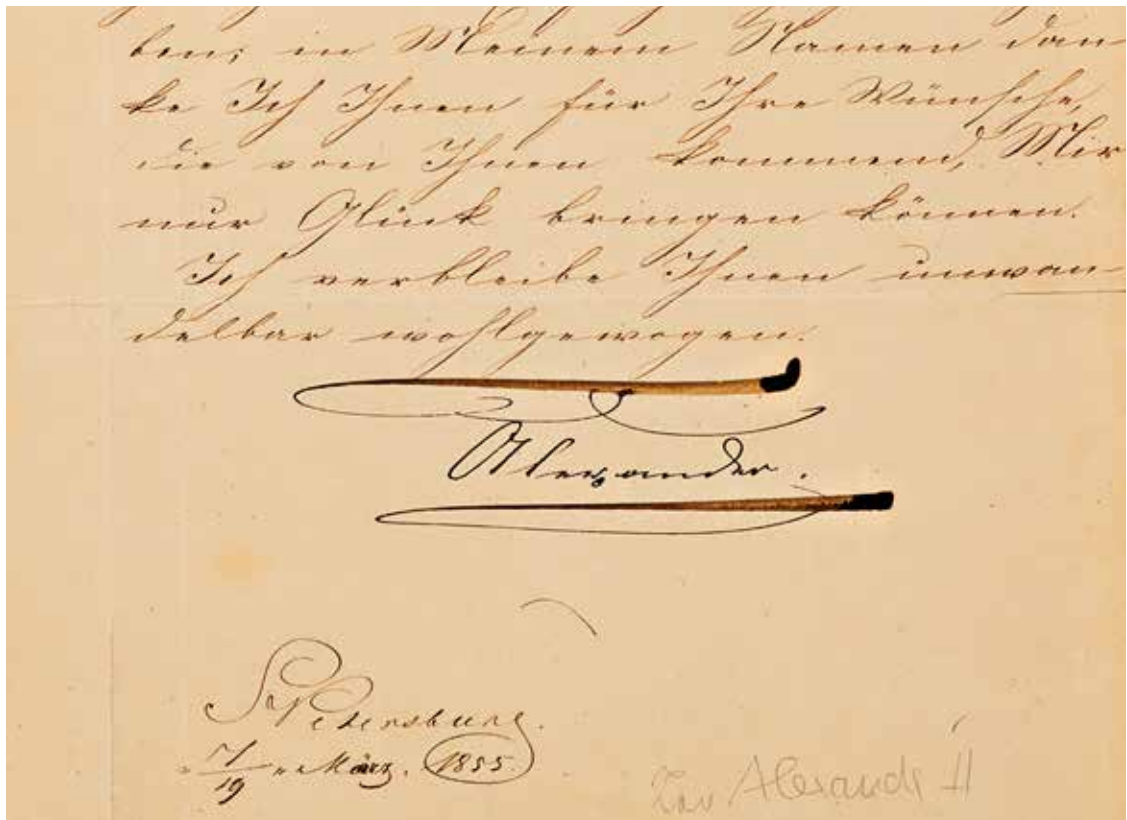 ben; in Meinem Namen dan-
ke Ich Ihnen für Ihre Wünsche,
die von Ihnen kommend, Mir
nur Glück bringen können.
Ich verbleibe Ihnen unwan-
delbar wohlgewogen.
Alexander.
St Petersburg.
März. 1855.
19
Zar Alexander II